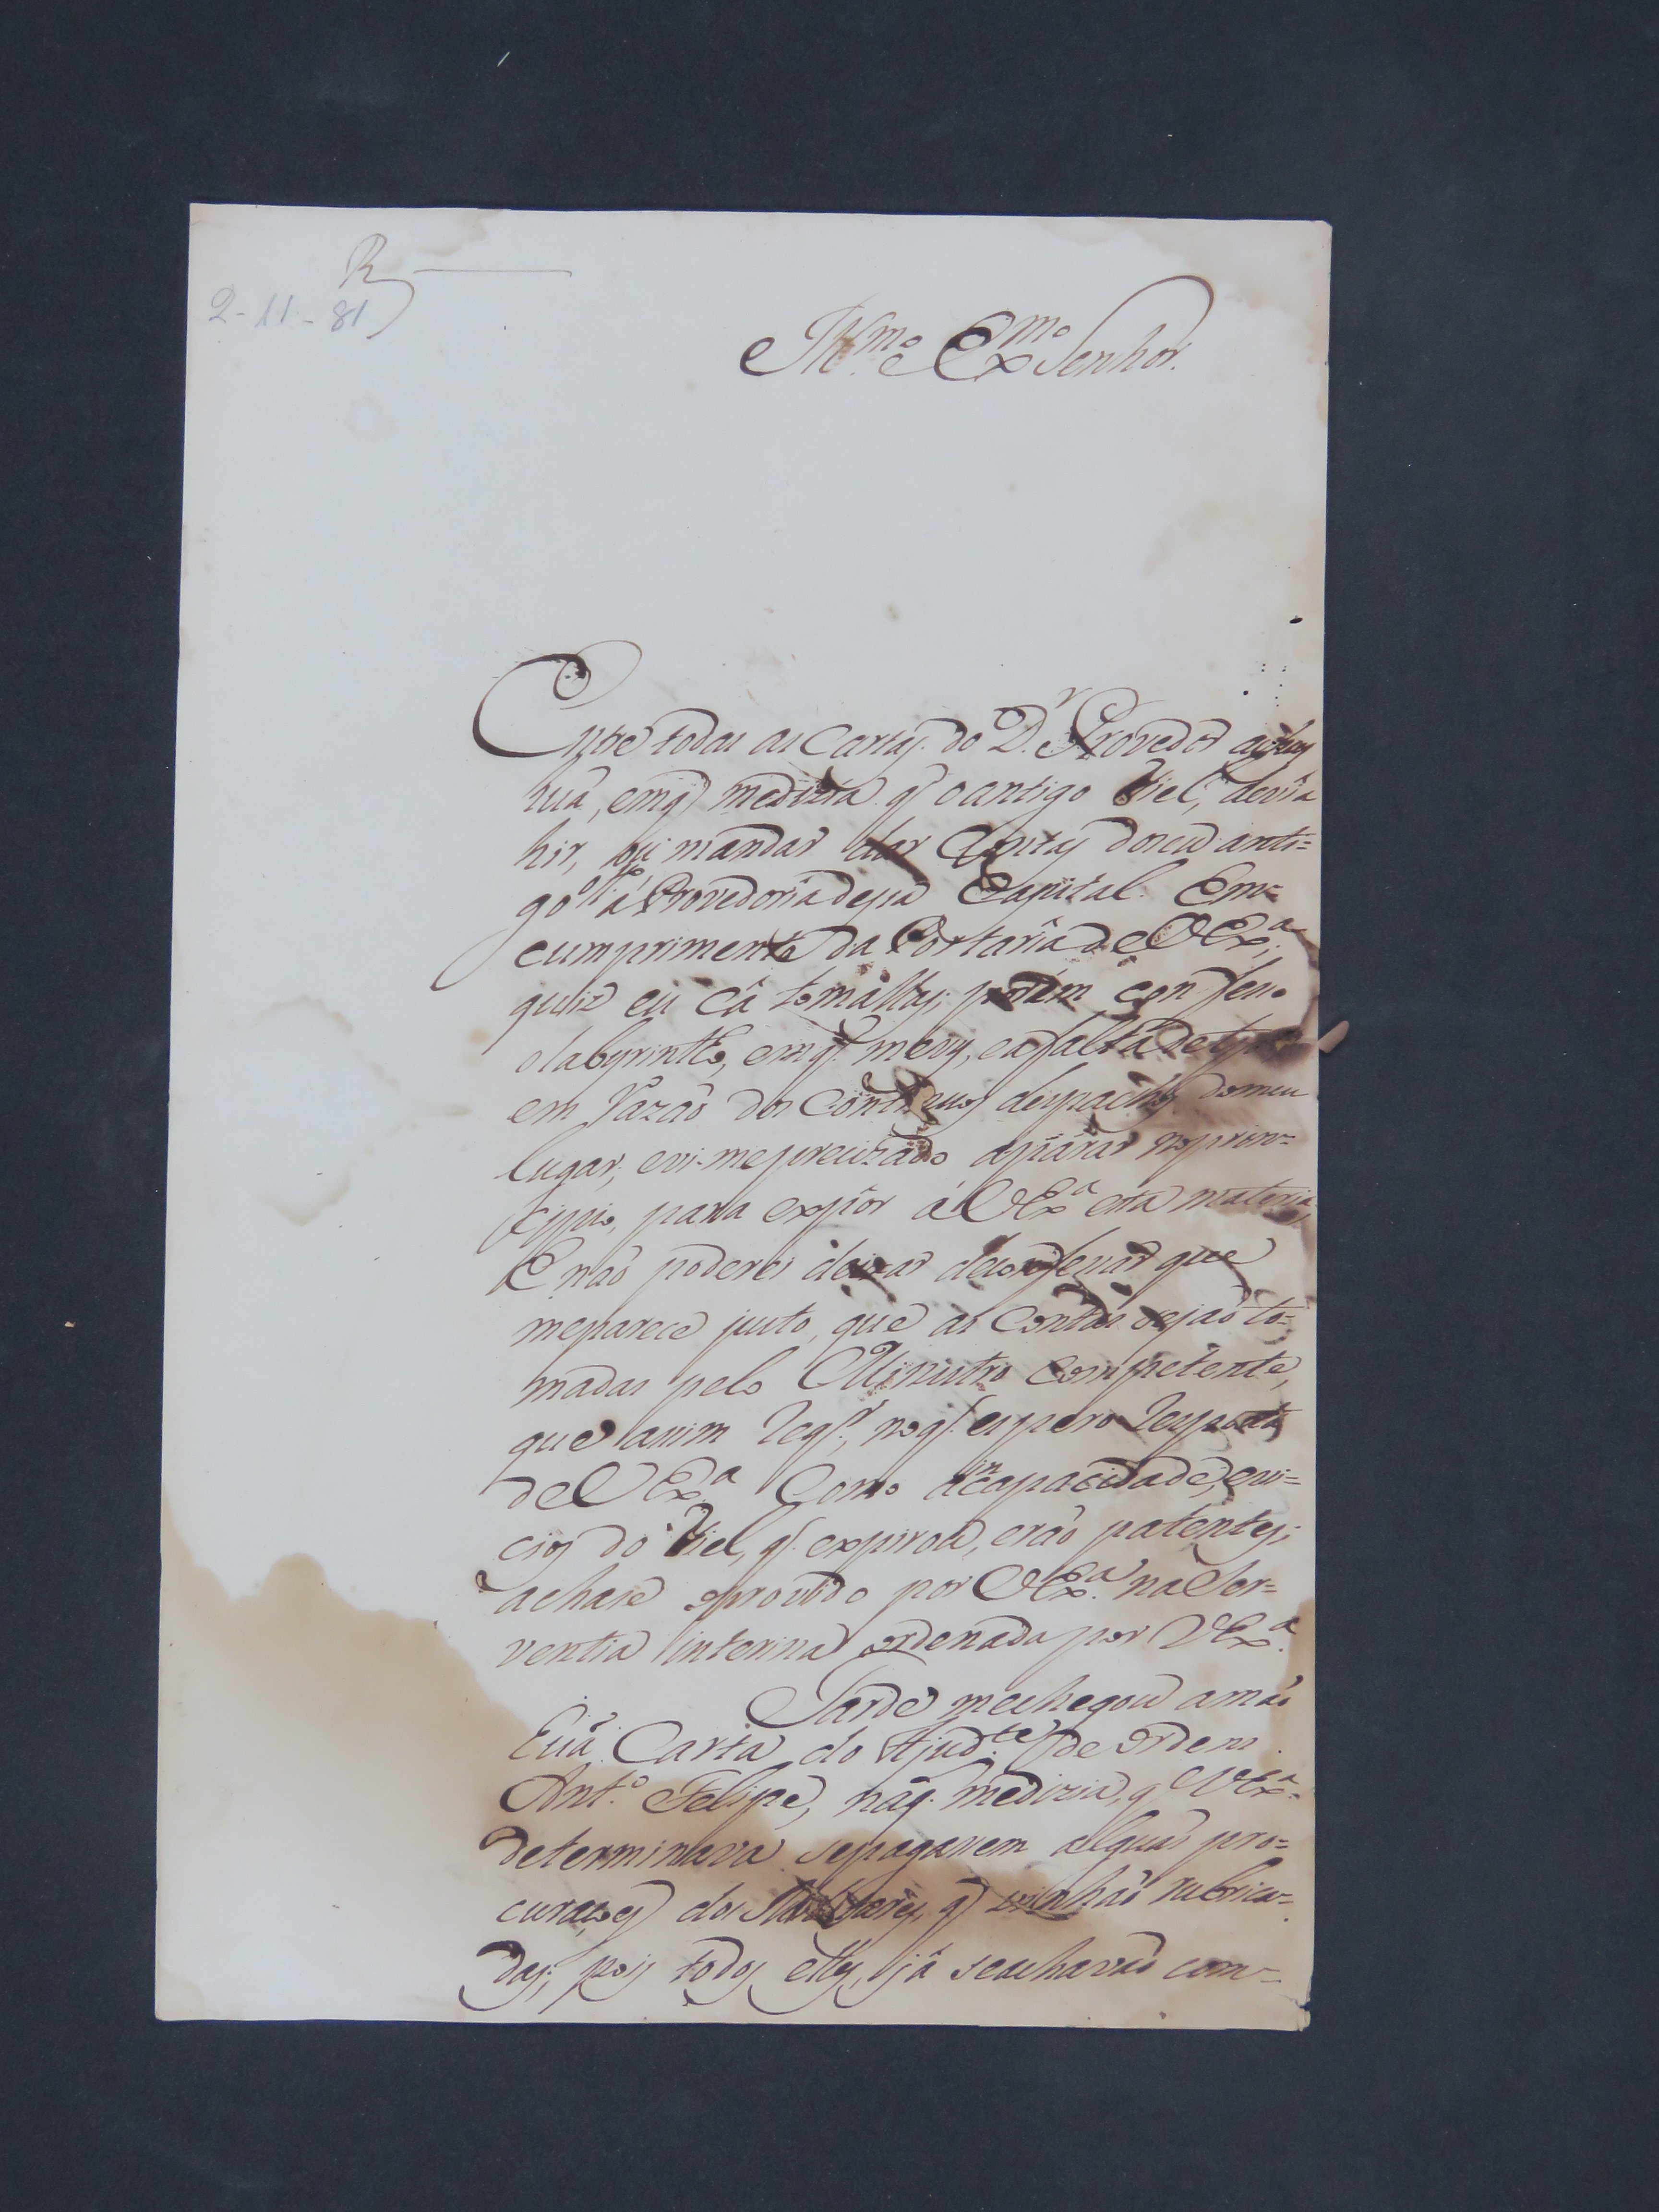 R
2-11-81
Illmo. e Exmo Senhor.
Entre todas as Cartas do D.r Provedor achey
huã, em q' me dizia q' o antigo Fiel, devia
hir, ou mandar dar Contas do seu anti=
go á Provedoria dessa Capital. Em
cumprimento da Portaria de VExa,
quiz eu cá tomallas; porém confesso
o labyrintho, em q' me vy, e a falta de tempo
em razaõ dos continuos despachos do meu
lugar; e vi-me precizado aparar no prin=
cippio, para expôr á VExa esta materia,
E naõ poderei deixar de confessar que
me parece justo, que as Contas sejaõ to=
madas pelo Ministro competente,
que assim reqr., no q' espero resposta
de VExa. Como a incapacidade, e vi=
cios do Fiel, q' expirou, eraõ patentes;
achase provido por VExa. na Ser=
ventia interina ordenada por VExa.
Tarde me chegou a maõ
huã Carta do Ajud.te de ordens
Ant.o Felipe, na q' me dizia, q' VExa.
determinava se pagassem alguãs pro=
curaçoes dos Militares, q' vinhaõ rubrica=
das; pois todos elles, já se achavaõ com=